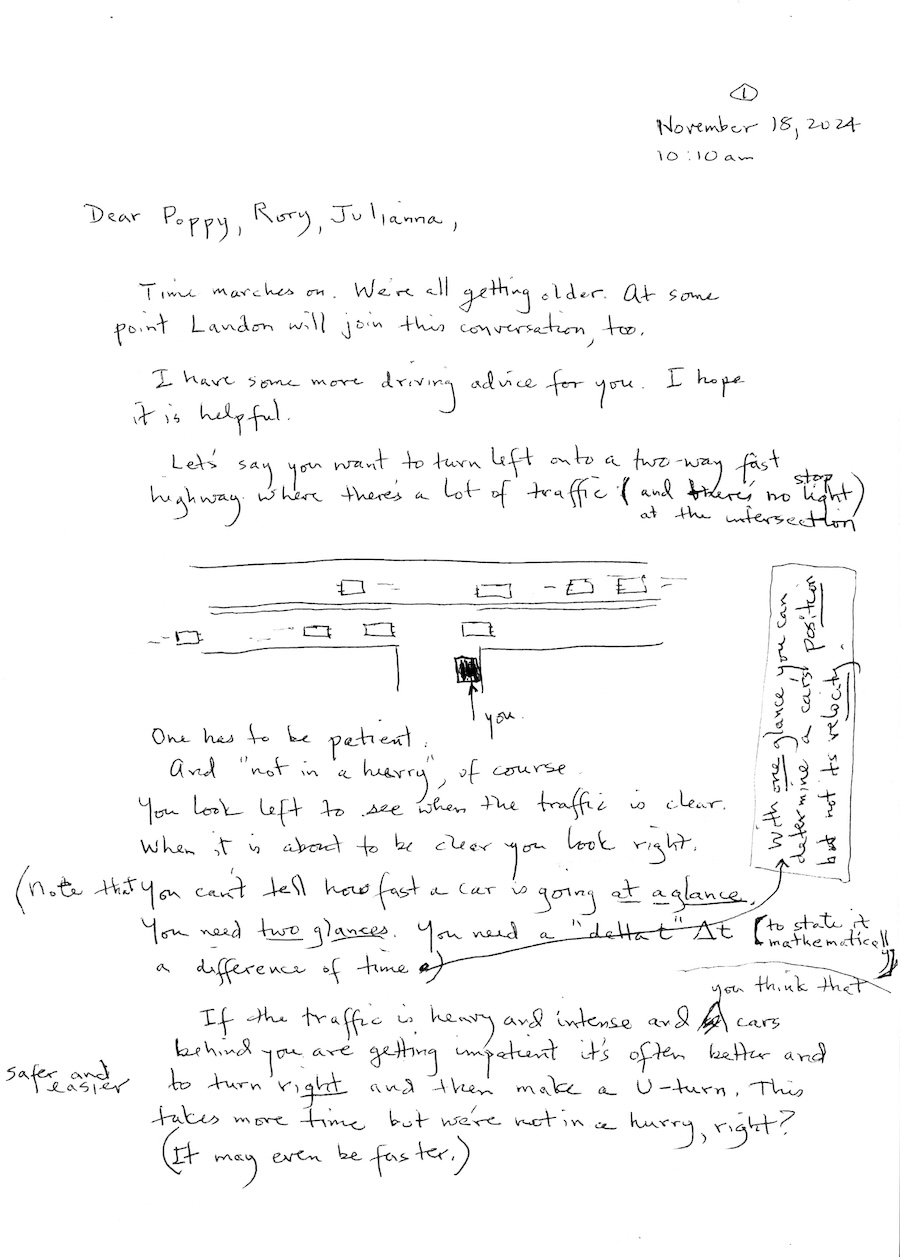 1
November 18, 2024
10:10 am
Dear Poppy, Rory, Julianna,
Time marches on. We're all getting older. At some
point Landon will join this conversation, too.
I have some more driving advice for you. I hope
it is helpful.
Let's say you want to turn left onto a two-way fast
highway where there's a lot of traffic (and there's no stop light)
at the intersection
you
One has to be patient.
And "not in a hurry", of course.
You look left to see when the traffic is clear.
When it is about to be clear you look right.
(Note that you can't tell how fast a car is going at a glance.
You need two glances. You need a "delta t" Δt [to state it
mathematically]
a difference of time)
With one glance you can
determine a car's position
but not its velocity.
If the traffic is heavy and intense and you think that cars
behind you are getting impatient it's often better and
safer and
easier
to turn right and then make a U-turn. This
takes more time but we're not in a hurry, right?
(It may even be faster.)